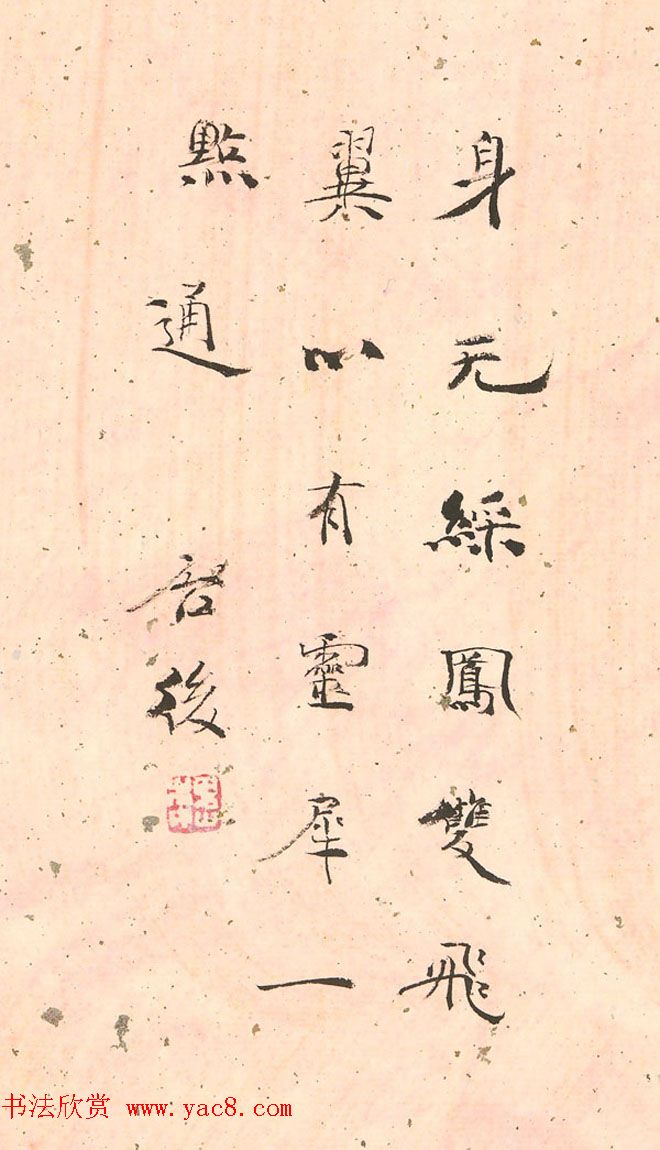 身无綵鳳雙飛
翼心有靈犀一
點通
後
书法欣赏 www.yac8.com